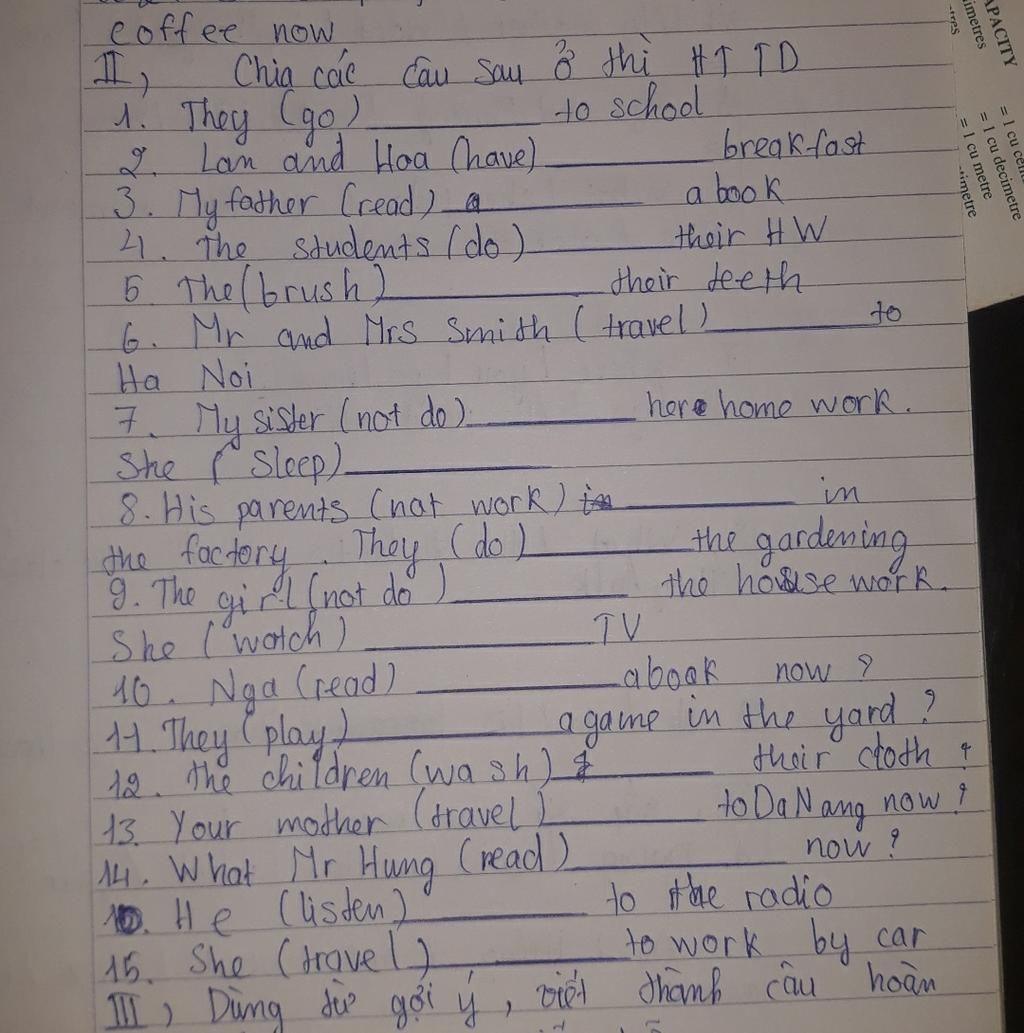 coffee now
II, Chia các câu sau ở thì HTTD
1. They (go) ______ to school
2. Lan and Hoa (have) ______ breakfast
3. My father (read) ______ a book
4. The students (do) ______ their HW
5 The (brush) ______ their teeth
6. Mr and Mrs Smith (travel) ______ to
Ha Noi
7. My sister (not do) ______ here home work.
She (sleep) ______
8. His parents (not work) ______ in
the factory. They (do) ______ the gardening
9. The girl (not do) ______ the house work.
She (watch) ______ TV
10. Nga (read) ______ a book now?
11. They (play) ______ a game in the yard?
12. the children (wash) ______ their cloth ?
13. Your mother (travel) ______ to Da Nang now?
14. What Mr Hung (read) ______ now?
He (listen) ______ to the radio
15. She (travel) ______ to work by car
III, Dùng từ gợi ý, viết thành câu hoàn
APACITY
= 1 cu decimetre
= 1 cu metre